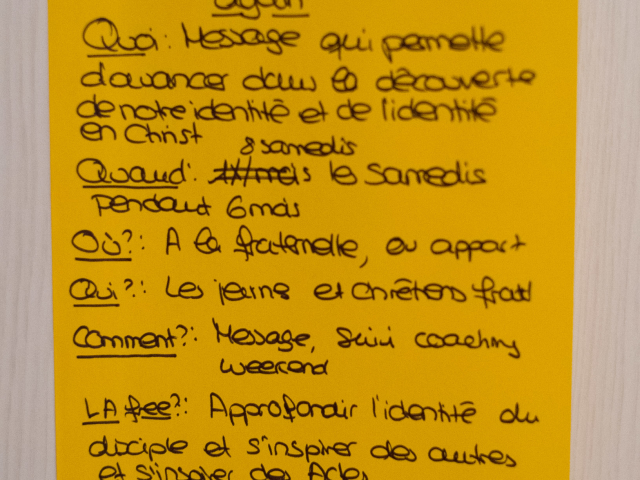 Quoi: Message qui permette
d'avancer dans la découverte
de notre identité et de l'identité
en Christ
8 samedis
Quand: le samedis
pendant 6 mois
Où?: A la fraternelle, ou appart
Qui?: Les jeunes et Chrétiens frat
Comment?: Message, Suivi coaching
weekend
LA free?: Approfondir l'identité du
disciple et s'inspirer des autres
et s'inspirer des Actes